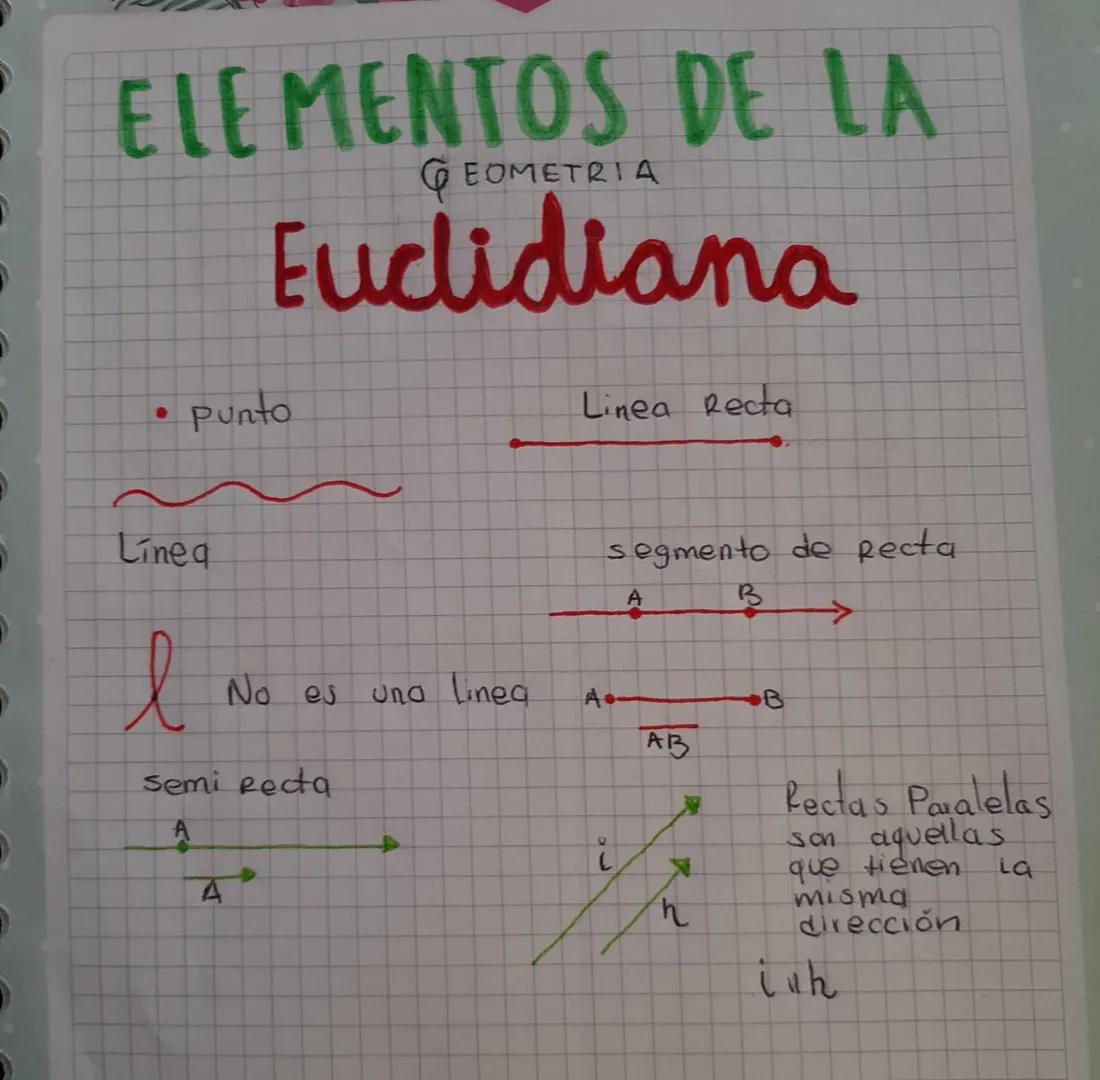 ELEMENTOS DE LA
GEOMETRIA
Euclidiana
• punto
Linea Recta
Línea
segmento de Recta
A B
l No es una linea
A B
AB
semi Recta
A
A
i
h
Rectas Paralelas
son aquellas
que tienen la
misma
dirección
i ॥ h